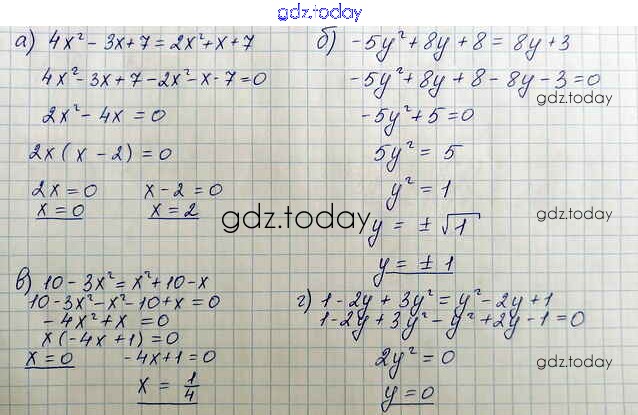 gdz.today
а) 4x² - 3x + 7 = 2x² + x + 7
4x² - 3x + 7 - 2x² - x - 7 = 0
2x² - 4x = 0
2x(x - 2) = 0
2x = 0 x - 2 = 0
x = 0 x = 2
б) -5y² + 8y + 8 = 8y + 3
-5y² + 8y + 8 - 8y - 3 = 0
gdz.today
-5y² + 5 = 0
5y² = 5
y² = 1
gdz.today
gdz.today
y = ± √1
y = ± 1
в) 10 - 3x² = x² + 10 - x
10 - 3x² - x² - 10 + x = 0
-4x² + x = 0
x(-4x + 1) = 0
x = 0 -4x + 1 = 0
x = 1/4
г) 1 - 2y + 3y² = y² - 2y + 1
1 - 2y + 3y² - y² + 2y - 1 = 0
2y² = 0
gdz.today
y = 0